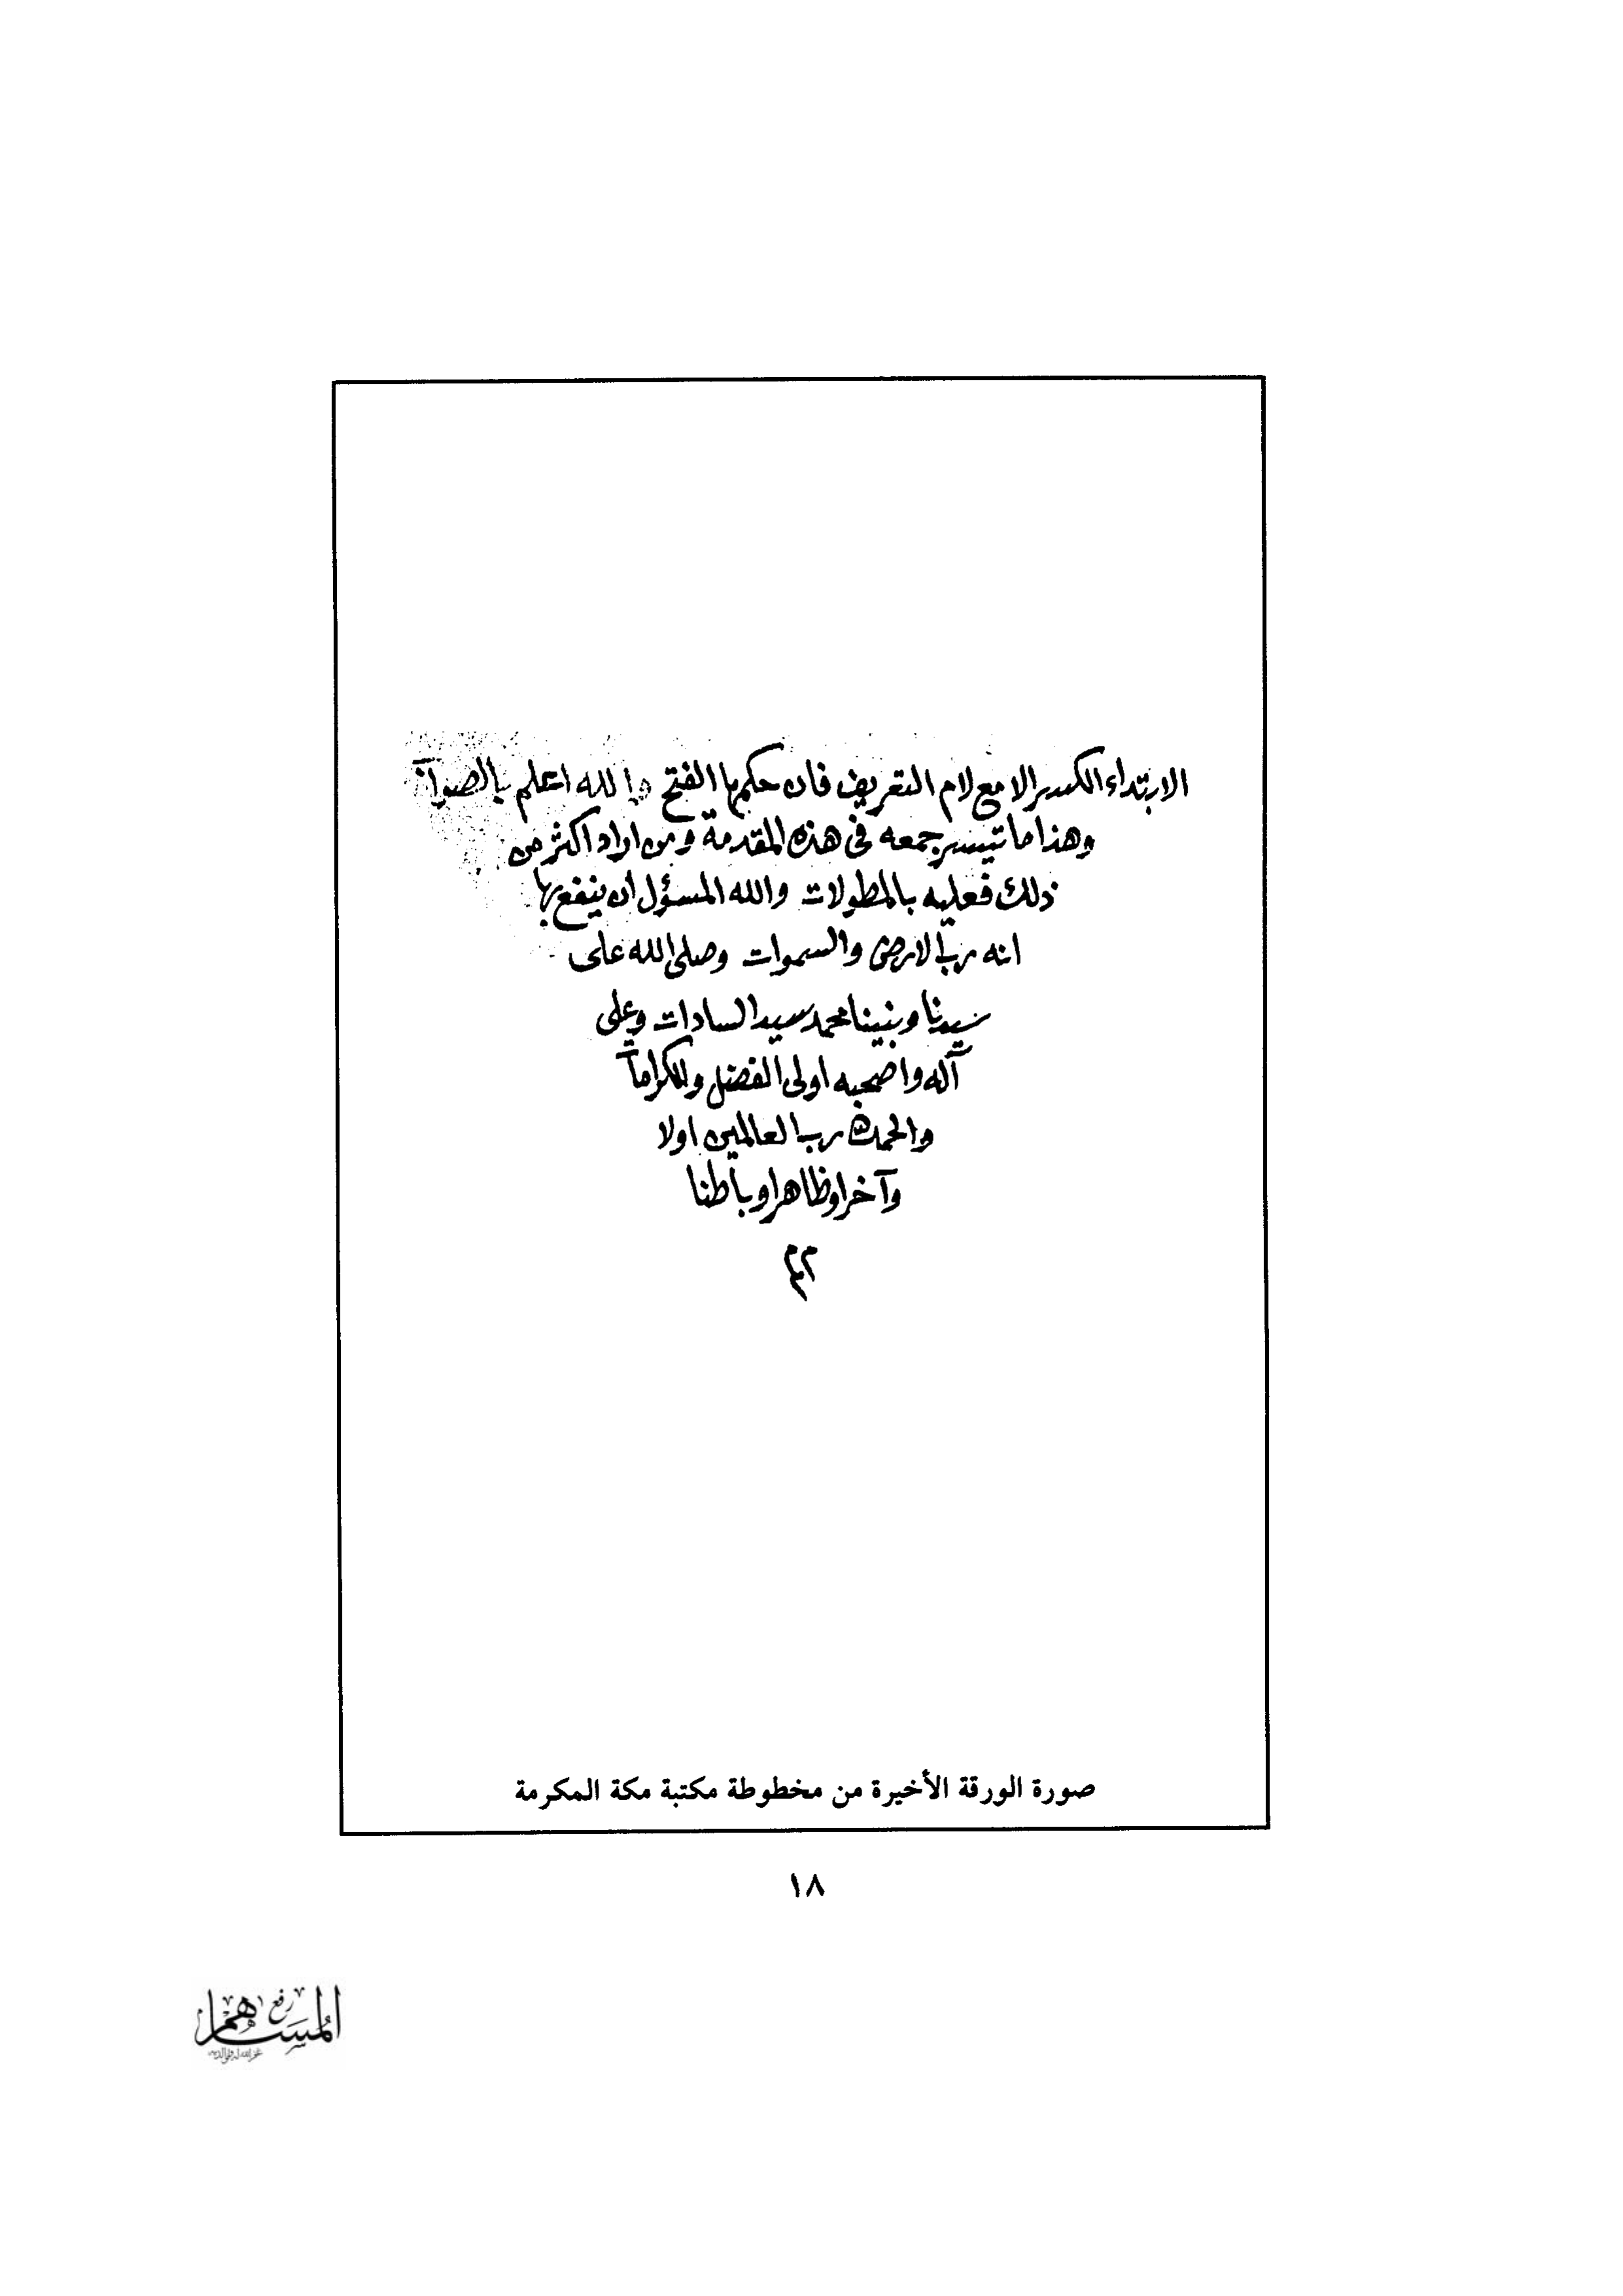 الابتداء الكسر الا مع لام التعريف فان حكمها الفتح والله اعلم بالصواب
وهذا ما تيسر جمعه فى هذه المقدمة ومن اراد اكثر من
ذلك فعليه بالمطولات والله المسؤل ان ينفع بها
انه رب الارض والسموات وصلى الله على
سيدنا ونبينا محمد سيد السادات وعلى
آله واصحبه اولى الفضل والكرامات
والحمد لله رب العالمين اولا
وآخرا وظاهرا وباطنا
صورة الورقة الأخيرة من مخطوطة مكتبة مكة المكرمة
١٨
رفع
المساهم